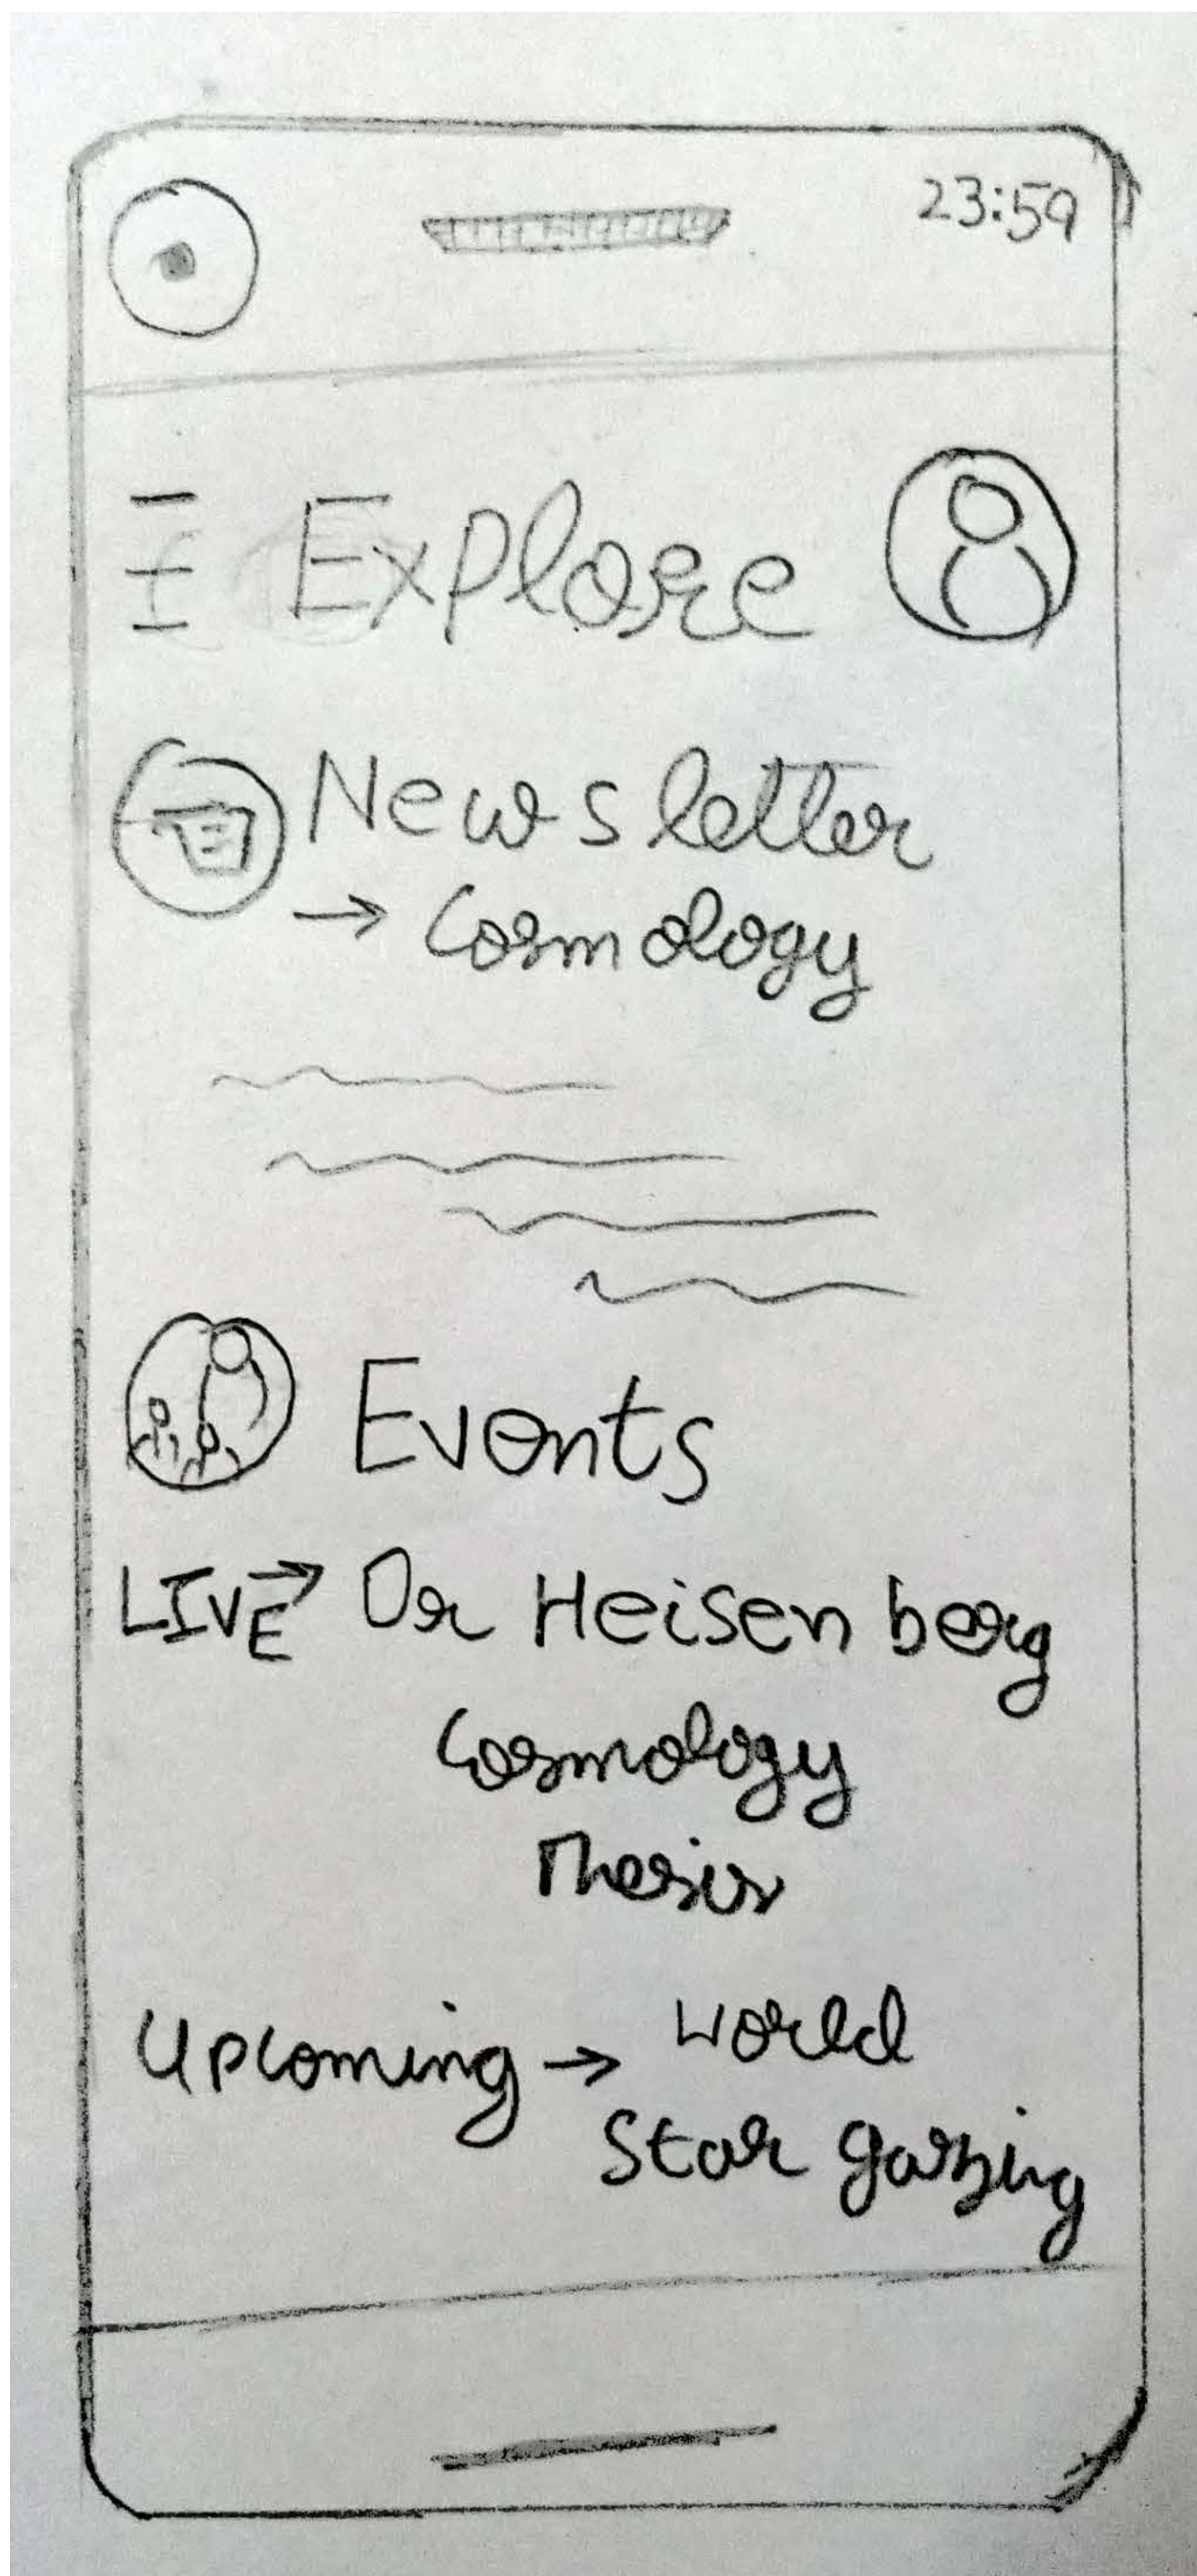 23:59
Explore
Newsletter
→ Cosmology
Events
LIVE → Dr Heisenberg
Cosmology
Thesis
Upcoming → World
Star gazing